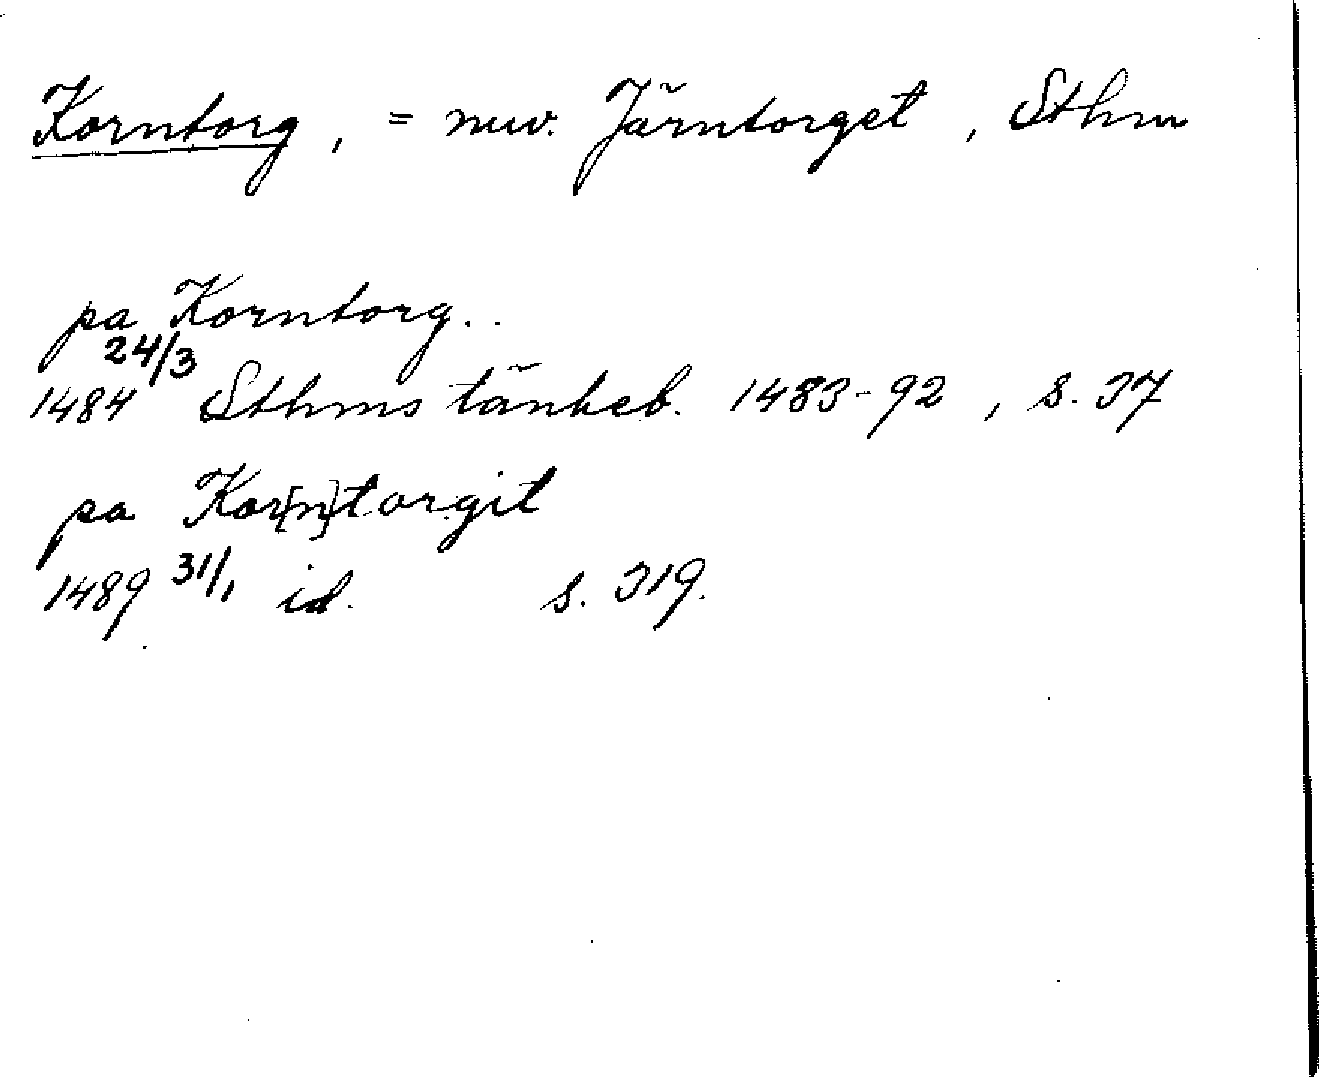 Korntorg, = nuv. Järntorget, Sthm
pa Korntorg..
1484 24/3 Sthms tänkeb. 1483-92, s. 37
pa Kor[n]torgit
1489 31/1 id. s. 319.